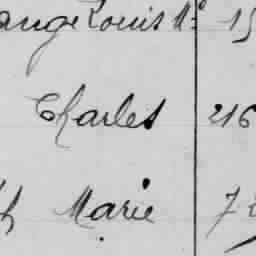 ange Louis Nº 15
Charles 216
h Marie 7